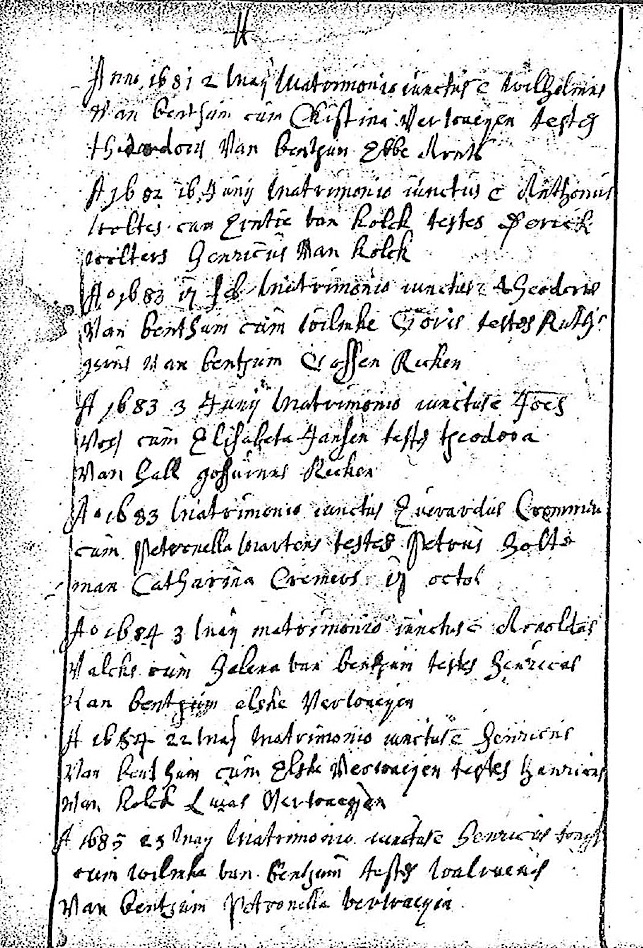 Anno 1681 2 Maij Matrimonio iunctus e wilhelmus
Van benthum cum Christina Verwaeyen testes
theodorus Van benthum Ebbe Arnts
A 1682 16 Junij Matrimonio iunctus e Anthonius
wolters cum van kolck testes Derick
wolters Henricus Van kolck
Ao 1683 17 feb Matrimonio iunctus e theodorus
Van benthum cum wilmke Goris testes Rutg
gerus Van benthum Gossen Ricken
A 1683 3 Junij Matrimonio iunctus e Joes
Voss cum Elisabeta Jansen testes theodora
Van hall gosuinus Ricken
Ao 1683 Matrimonio iunctus Everardus
cum Petronella Martens testes Petrus holts
man Catharina Cremers 17 octob
Ao 1684 3 Maij matrimonio iunctus e Arnoldus
Valcks cum Jalena van benthum testes henricus
Van benthum elske Verwaeyen
A 1684 22 Maij Matrimonio iunctus e henricus
Van benthum cum Elske Verwaeyen testes henricus
Van kolck Lucas Verwaeyen
A 1685 23 Maij Matrimonio iunctus e henricus
cum wilmka van benthum testes walravenis
Van benthum Petronella verwaeyen